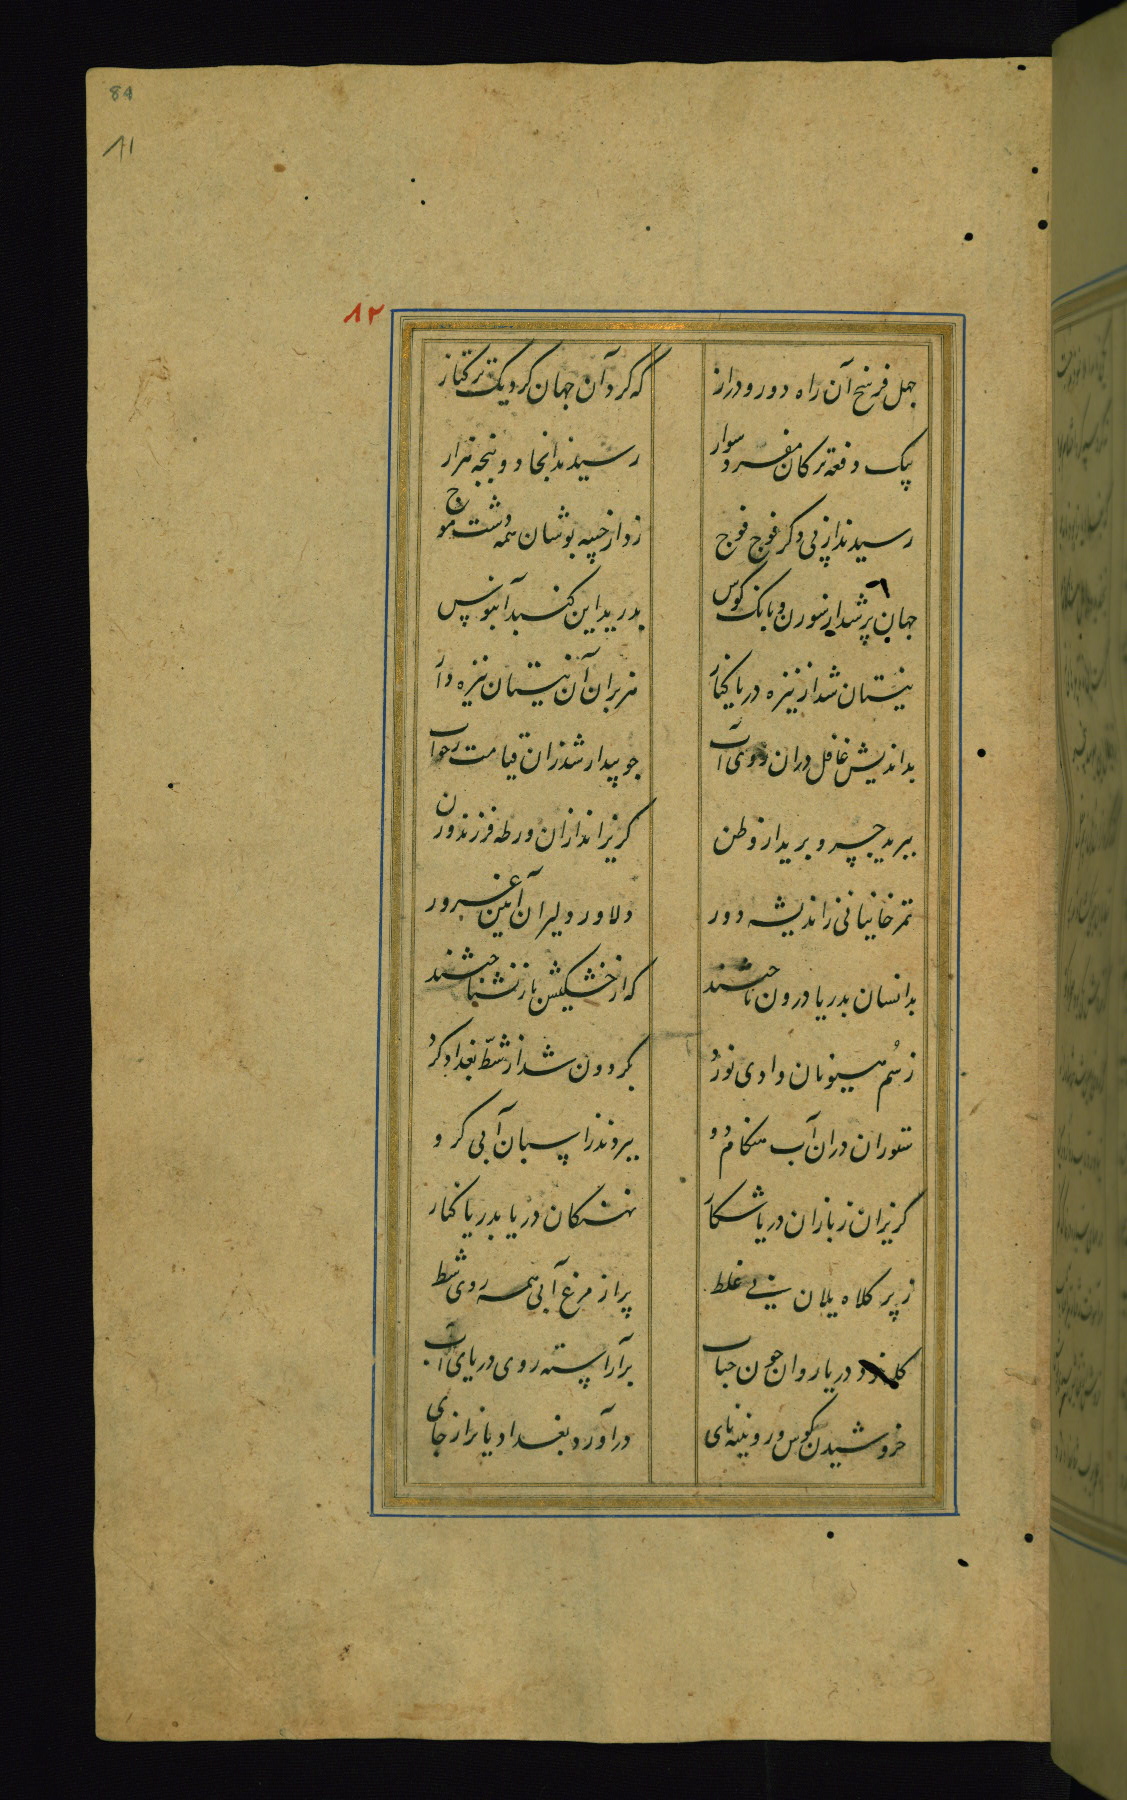 84
۸۱
۸۲
جهل فرسخ آن راه دور و دراز که کرد آن جهان کرد یک ترکتاز
بیک دفعه ترکان مفرد سوار رسیدند انجا دو پنجه هزار
رسیدند از پی دکر فوج فوج زد از جیبه پوشان همه دشت موج
جهان پر شد از سورن و بانک کوس بدرید این کنبد آبنوس
نیستان شد از نیزه دریا کنار هزبران آن نیستان نیزه دار
بداندیش غافل دران روی آب جو بیدار شد زان قیامت زخواب
ببرید جسر و برید از وطن کریزاند ازان ورطه فرزند و زن
تمرخانیانی ز اندیشه دور دلاور دلیران آیین غرور
بدانسان بدریا درون تاختند که از خشکیش باز نشناختند
ز سُم هیونان وادی نورد بکردون شد از شطّ بغداد کرد
ستوران دران آب هنکام دو ببردند ز اسبان آبی کرو
کریزان ز بازان دریا شکار نهنکان دریا بدریا کنار
ز پر کلاه یلان بی غلط پر از مرغ آبی همه روی شط
کله خود دریا روان جون حباب برآراسته روی دریای آب
خروشیدن کوس و رویینه نای درآورد بغدادیانرا ز جای